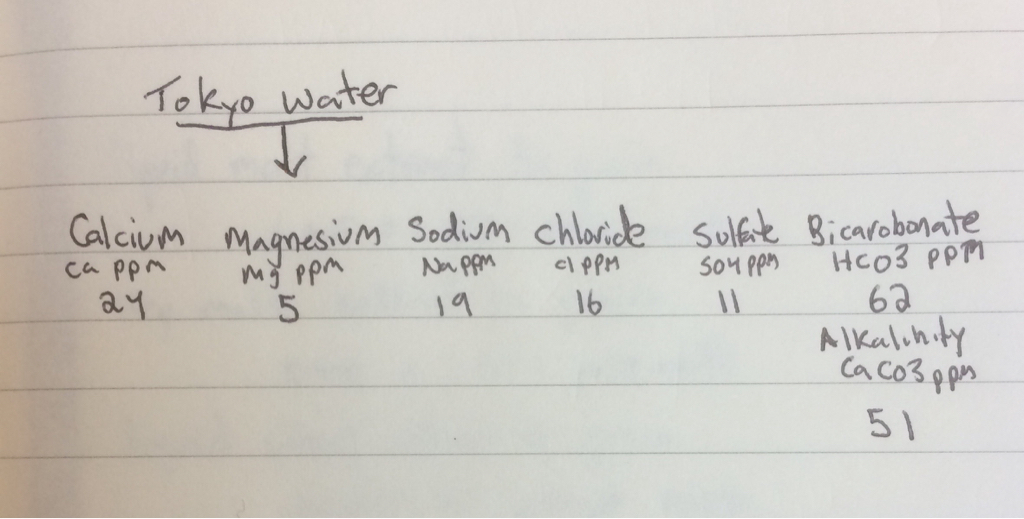 Tokyo Water
Calcium Magnesium Sodium chloride Sulfate Bicarobonate
Ca ppm Mg ppm Na ppm Cl ppm SO4 ppm HCO3 PPM
24 5 19 16 11 62
Alkalinity
CaCO3 ppm
51